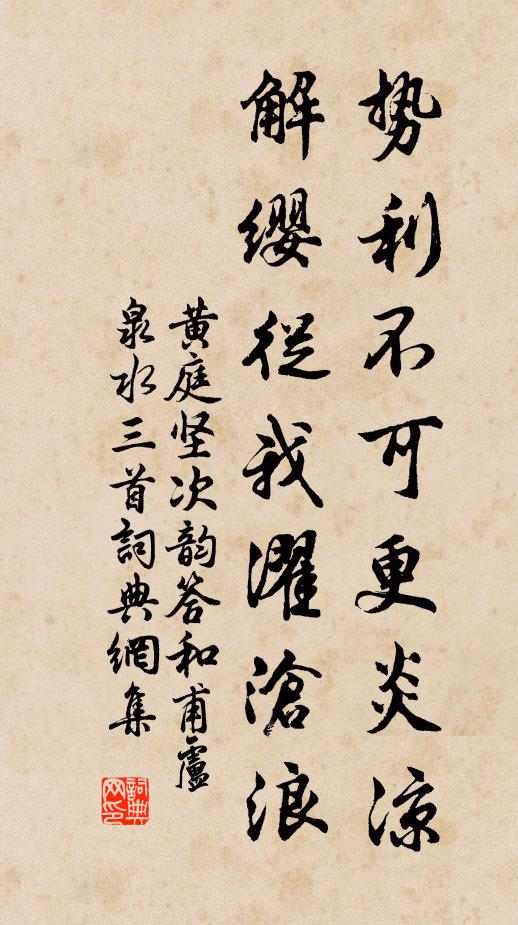 势利不可更炎凉
解缨從我濯滄浪
黄庭坚次韵答和甫盧
泉水三首詞典網集
詞典网印